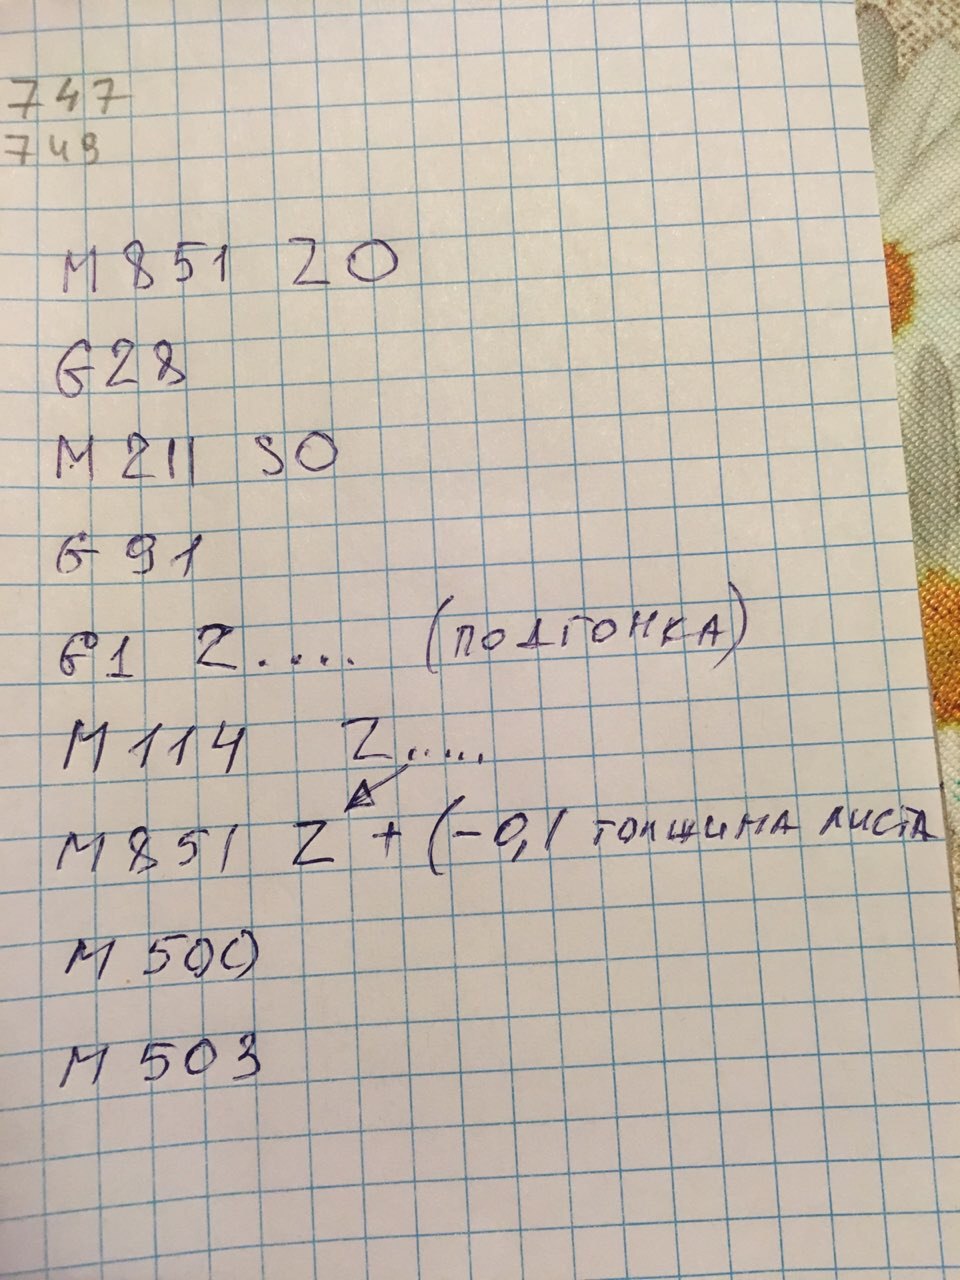 747
749
M851 Z0
G28
M211 S0
G91
G1 Z.... (ПОДГОНКА)
M114 Z.....
M851 Z + (-0,1 ТОЛЩИНА ЛИСТА
M500
M503